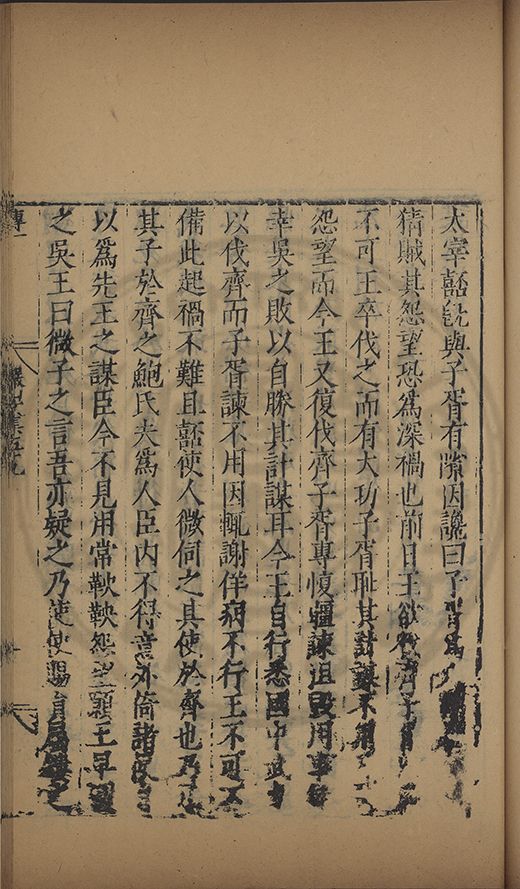 太宰嚭既與子胥有隙因讒曰子胥爲
猜賊其怨望恐爲深禍也前日王欲伐齊子胥
不可王卒伐之而有大功子胥恥其計謀不用
怨望而今王又復伐齊子胥專愎彊諫沮毀用事
幸吳之敗以自勝其計謀耳今王自行悉國中武
以伐齊而子胥諫不用因輒謝佯病不行王不可不
備此起禍不難且嚭使人微伺之其使於齊也乃
其子於齊之鮑氏夫爲人臣內不得意外倚諸侯
以爲先王之謀臣今不見用常鞅鞅怨望願王早圖
之吳王曰微子之言吾亦疑之乃使使賜員屬鏤之
傳一